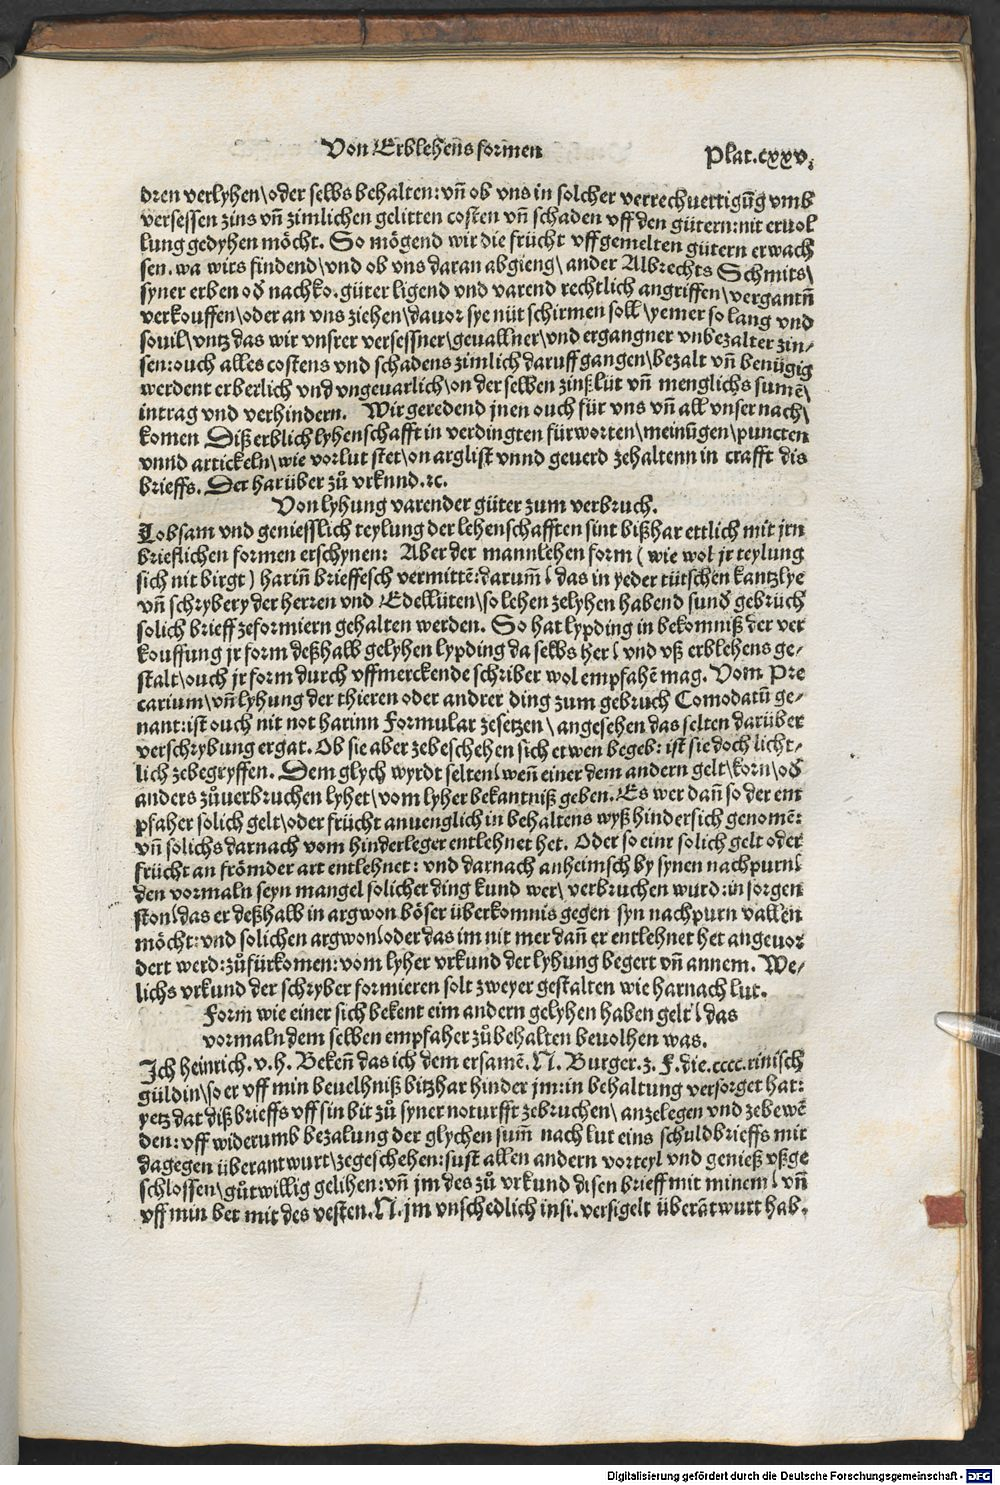 Von Erblehens formen
Plat.cxxv.
dren verlyhen\oder selbs behalten: vn̄ ob vns in solcher verrechuertigūg vmb
versessen zins vn̄ zimlichen gelitten costen vn̄ schaden vff den gütern: nit eruol
lung gedyhen möcht. So mögend wir die frücht vff gemelten gütern erwach
sen. wa wirs findend\vnd ob vns daran abgieng\ ander Albrechts Schmits\
syner erben od̄ nachko. güter ligend vnd varend rechtlich angriffen\vergantn̄
verkouffen\oder an vns ziehen\dauor sye nüt schirmen soll\yemer so lang vnd
souil\vntz das wir vnsrer versessner\geuallner\vnd ergangner vnbezalter zin⸗
sen: ouch alles costens vnd schadens zimlich daruff gangen\bezalt vn̄ benügig
werdent erberlich vnd vngeuarlich\on der selben zinßlüt vn̄ menglichs sumē\
intrag vnd verhindern. Wir geredend jnen ouch für vns vn̄ all vnser nach\
komen Diß erblich lyhenschafft in verdingten fürworten\meinūgen\puncten
vnnd artickeln\wie vorlut stet\on arglist vnnd geuerd zehaltenn in crafft dis
brieffs. Der harüber zů vrknnd.ꝛc.
Von lyhung varender güter zum verbruch.
Lobsam vnd geniesslich teylung der lehenschafften sint bißhar ettlich mit jrn
brieflichen formen erschynen: Aber der mannlehen form ( wie wol jr teylung
sich nit birgt ) harin̄ brieffesch vermittē: darum̄ ⟨ das in yeder tütschen kantzlye
vn̄ schrybery der herren vnd Edellüten\so lehen zelyhen habend sund̄ gebrüch
solich brieff zeformiern gehalten werden. So hat lypding in bekomniß der ver
kouffung jr form deßhalb gelyhen lypding da selbs her ⟨ vnd vß erblehens ge⸗
stalt\ouch jr form durch vffmerckende schriber wol empfahē mag. Vom Pre
carium\vn̄ lyhung der thieren oder andrer ding zum gebruch Comodatū ge⸗
nant: ist ouch nit not harinn Formular zesetzen\ angesehen das selten darüber
verschrybung ergat. Ob sie aber zebeschehen sich etwen begeb: ist sie doch licht⸗
lich zebegryffen. Dem glych wyrdt selten ⟨ wen̄ einer dem andern gelt\korn\od̄
anders zůuerbruchen lyhet\vom lyher bekantniß geben. Es wer dan̄ so der em
pfaher solich gelt\oder frücht anuenglich in behaltens wyß hindersich genomē:
vn̄ solichs darnach vom hinderleger entlehnet het. Oder so einr solich gelt oder
frücht an frömder art entlehnet: vnd darnach anheimsch by synen nachpurn ⟨
den vormaln seyn mangel solicher ding kund wer\ verbruchen wurd: in sorgen
ston ⟨ das er deßhalb in argwon böser überkomnis gegen syn nachpurn vallen
möcht: vnd solichen argwon ⟨ oder das im nit mer dan̄ er entlehnet het angeuor
dert werd: zůfürkomen: vom lyher vrkund der lyhung begert vn̄ annem. We⸗
lichs vrkund der schryber formieren solt zweyer gestalten wie harnach lut.
Form wie einer sich bekent eim andern gelyhen haben gelt ⟨ das
vormaln dem selben empfaher zůbehalten beuolhen was.
Ich heinrich.v.h. Beken̄ das ich dem ersamē.N. Burger.z. F. die.cccc.rinisch
güldin\so er vff min beuelhniß bitzhar hinder jm: in behaltung versorget hat:
yetz dat diß brieffs vff sin bit zů syner noturfft zebruchen\ anzelegen vnd zebewē
den: vff widerumb bezalung der glychen sum̄ nach lut eins schuldbrieffs mir
dagegen überantwurt\zegeschehen: sust allen andern vorteyl vnd genieß vßge
schlossen\gůtwillig gelihen: vn̄ jm des zů vrkund disen brieff mit minem ⟨ vn̄
vff min bet mit des vesten.N.jm vnschedlich insi. versigelt überātwurt hab.
Digitalisierung gefördert durch die Deutsche Forschungsgemeinschaft - DFG